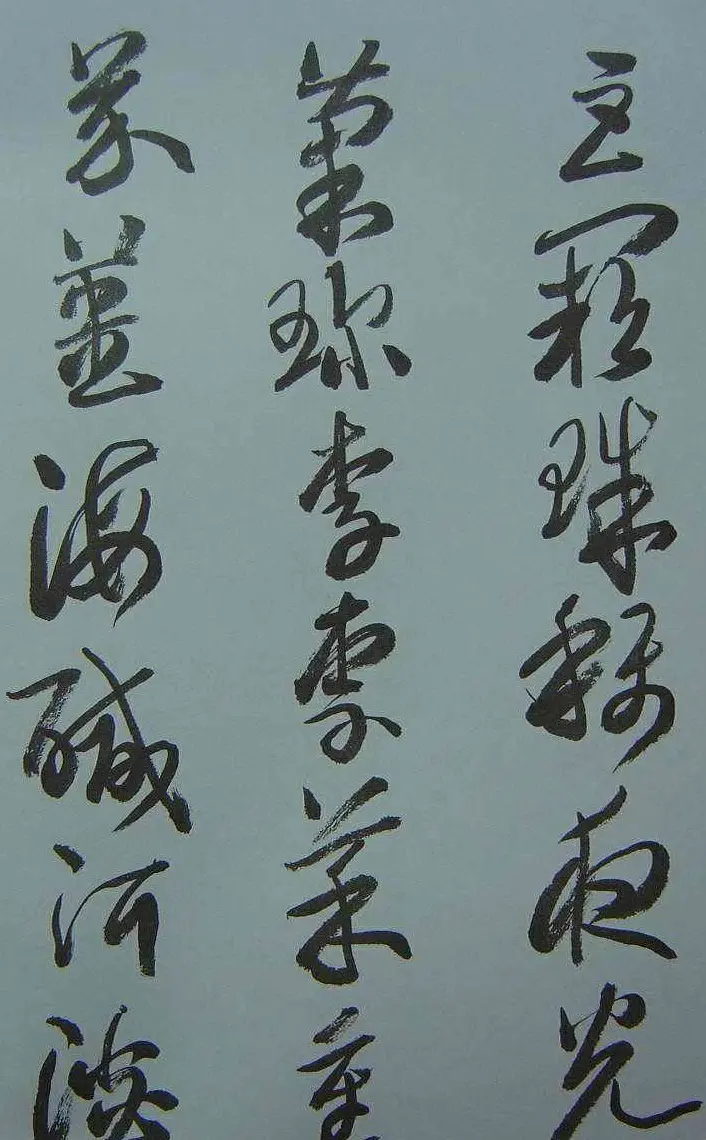 巨闕珠稱夜光
菓珍李柰菜重
芥薑海醎河淡